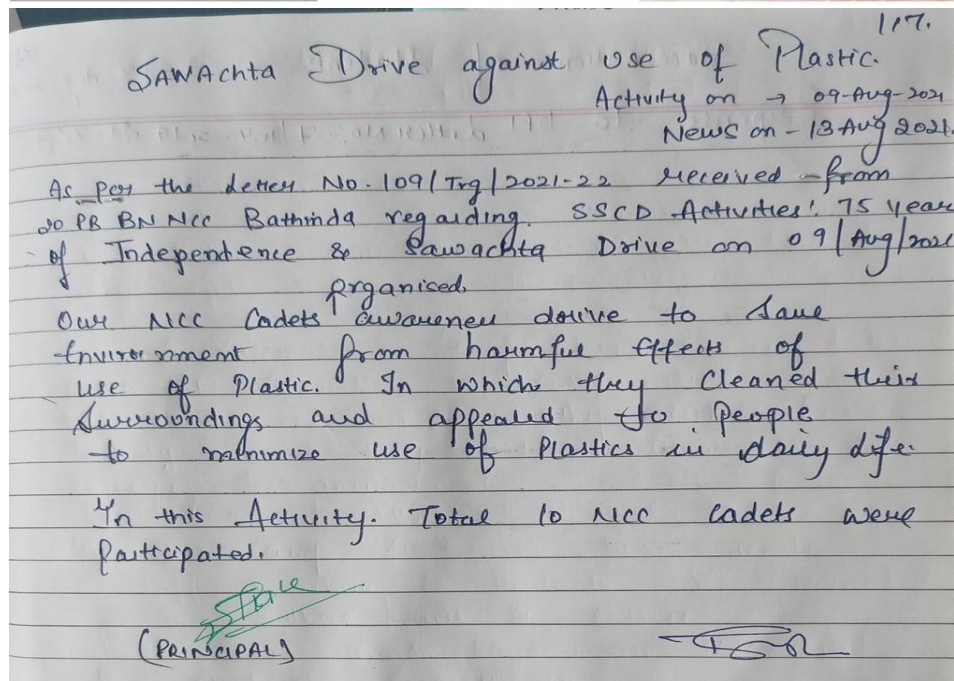 117.
SAWAchta Drive against use of Plastic.
Activity on → 09-Aug-2021
News on - 13 Aug 2021.
As per the letter No. 109/Trg/2021-22 received from
20 PB BN NCC Bathinda regarding SSCD Activities: 75 year
of Independence & Sawachta Drive on 09/Aug/2021
organised
Our NCC Cadets awareness drive to save
Environment from harmful effects of
use of Plastic. In which they cleaned their
Surroundings and appealed to people
to minimize use of Plastics in daily life.
In this Activity. Total 10 NCC cadets were
Participated.
(PRINCIPAL)